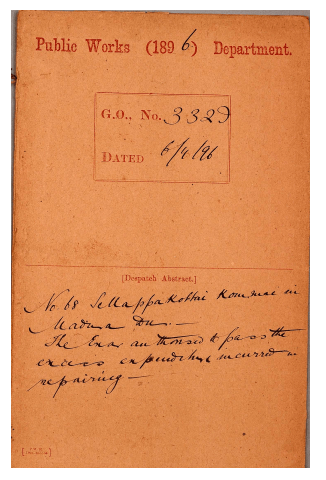 Public Works (1896) Department.
G.O., No. 3329
DATED 6/4/96
[Despatch Abstract.]
No 68 Sellappakottai Kommai in
Madura Dt.—
The Exr authorised to pass the
excess expenditure incurred in
repairing—